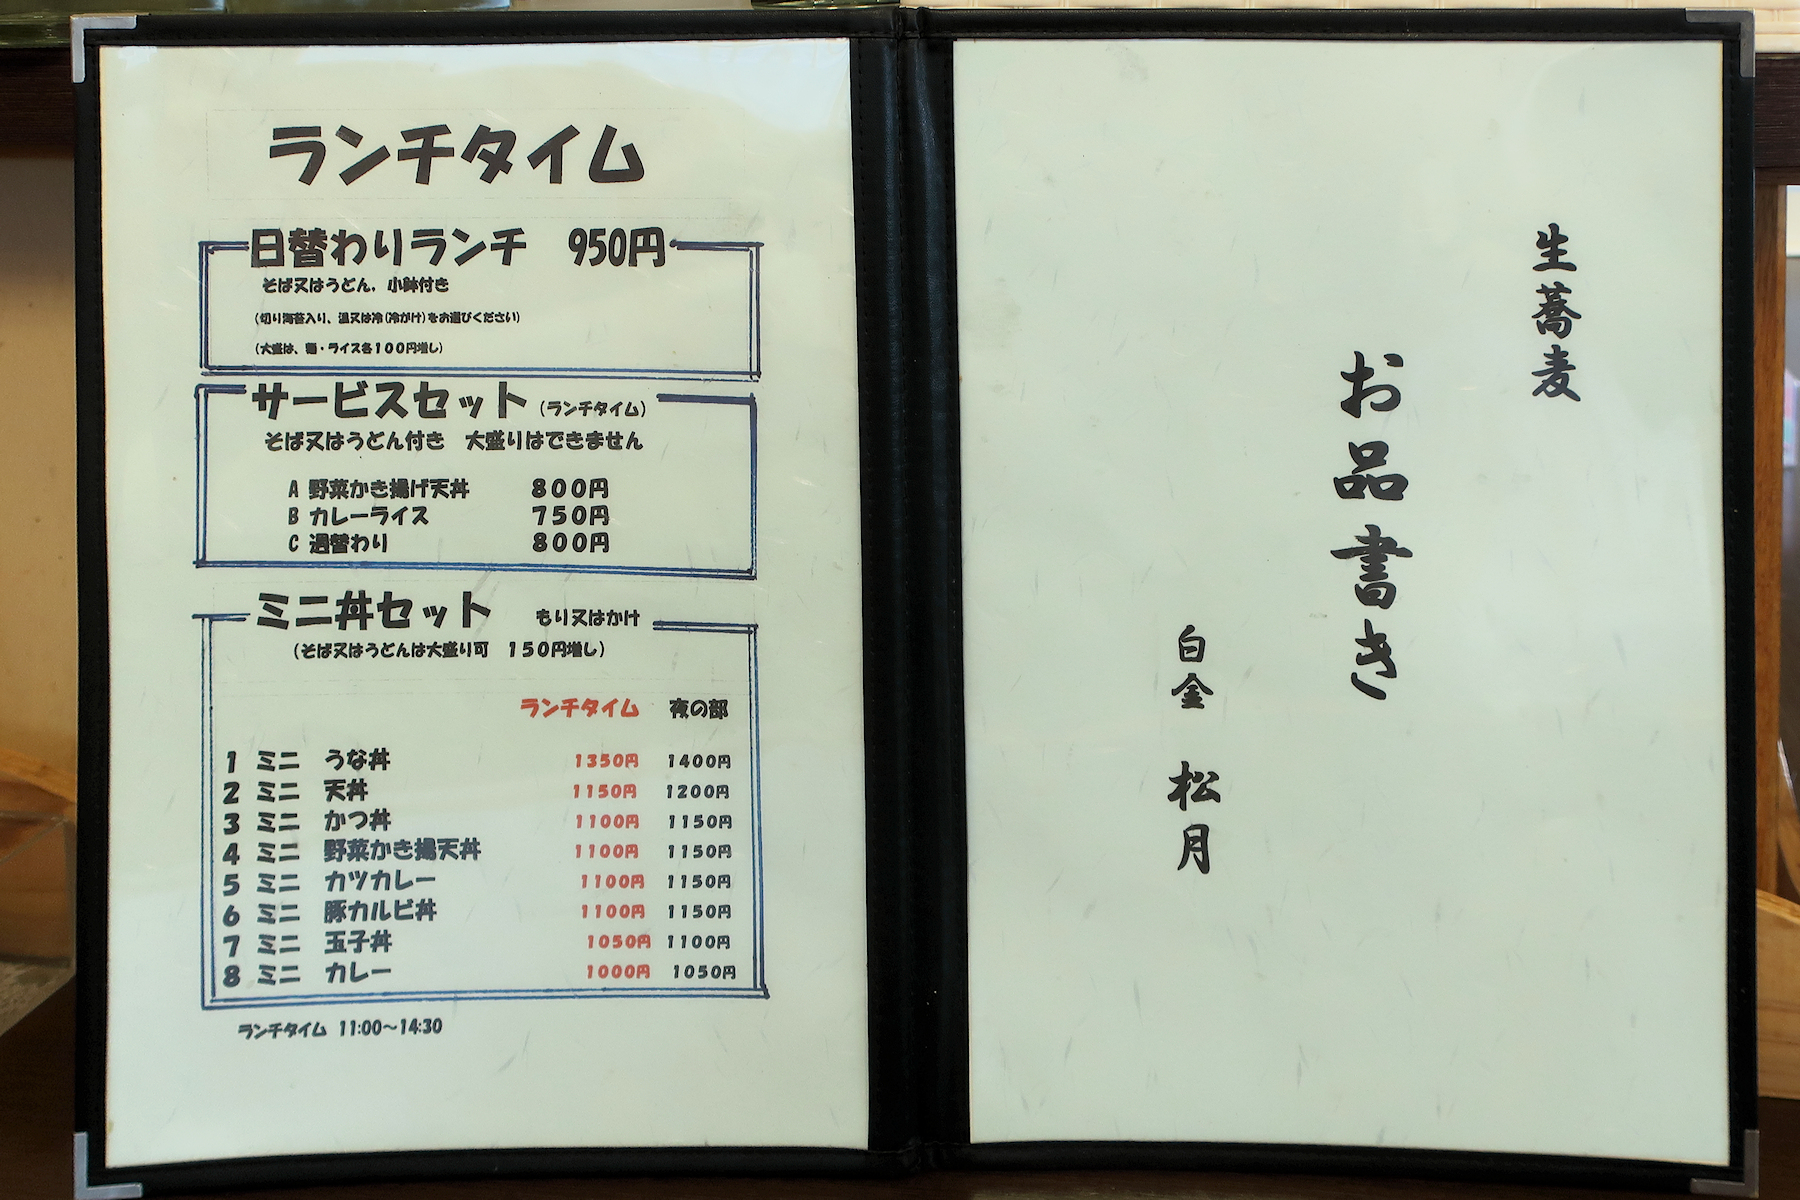 ランチタイム
日替わりランチ 950円
そば又はうどん, 小鉢付き
(切り海苔入り、温又は冷(冷かけ)をお選びください)
(大盛は、麺・ライス各100円増し)
サービスセット (ランチタイム)
そば又はうどん付き 大盛りはできません
A 野菜かき揚げ天丼 800円
B カレーライス 750円
C 週替わり 800円
ミニ丼セット もり又はかけ
(そば又はうどんは大盛り可 150円増し)
ランチタイム 夜の部
1 ミニ うな丼 1350円 1400円
2 ミニ 天丼 1150円 1200円
3 ミニ かつ丼 1100円 1150円
4 ミニ 野菜かき揚天丼 1100円 1150円
5 ミニ カツカレー 1100円 1150円
6 ミニ 豚カルビ丼 1100円 1150円
7 ミニ 玉子丼 1050円 1100円
8 ミニ カレー 1000円 1050円
ランチタイム 11:00～14:30
生蕎麦
お品書き
白金 松月